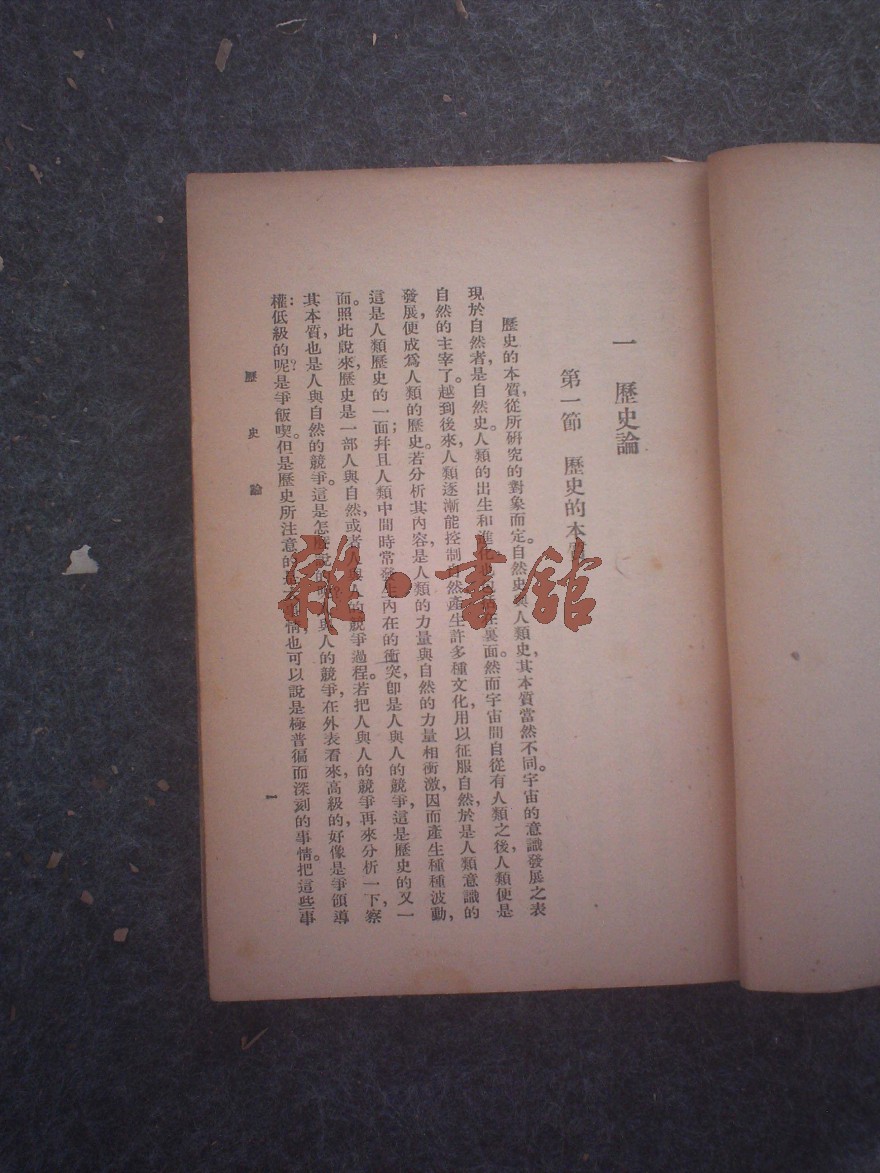 一　歷史論
第一節　歷史的本
歷史的本質，從所研究的對象而定。自然史與人類史，其本質當然不同。宇宙的意識發展之表
現於自然者，是自然史。人類的出生和進化裏面。然而宇宙間自從有人類之後，人類便是
自然的主宰了。越到後來，人類逐漸能控制自然，產生許多種文化，用以征服自然，於是人類意識的
發展，便成爲人類的歷史。若分析其內容，是人類的力量與自然的力量相衝激，因而產生種種波動，
這是人類歷史的一面；幷且人類中間時常發生內在的衝突，卽是人與人的競爭，這是歷史的又一
面。照此說來，歷史是一部人與自然，或者人與人的競爭過程。若把人與人的競爭再來分析一下，察
其本質，也是人與自然的競爭。這是怎麽說的與人的競爭，在外表看來，高級的，好像是爭領導
權：低級的呢？是爭飯喫。但是歷史所注意的事情，也可以說是極普徧而深刻的事情。把這些事
歷史論
一
雜·書館